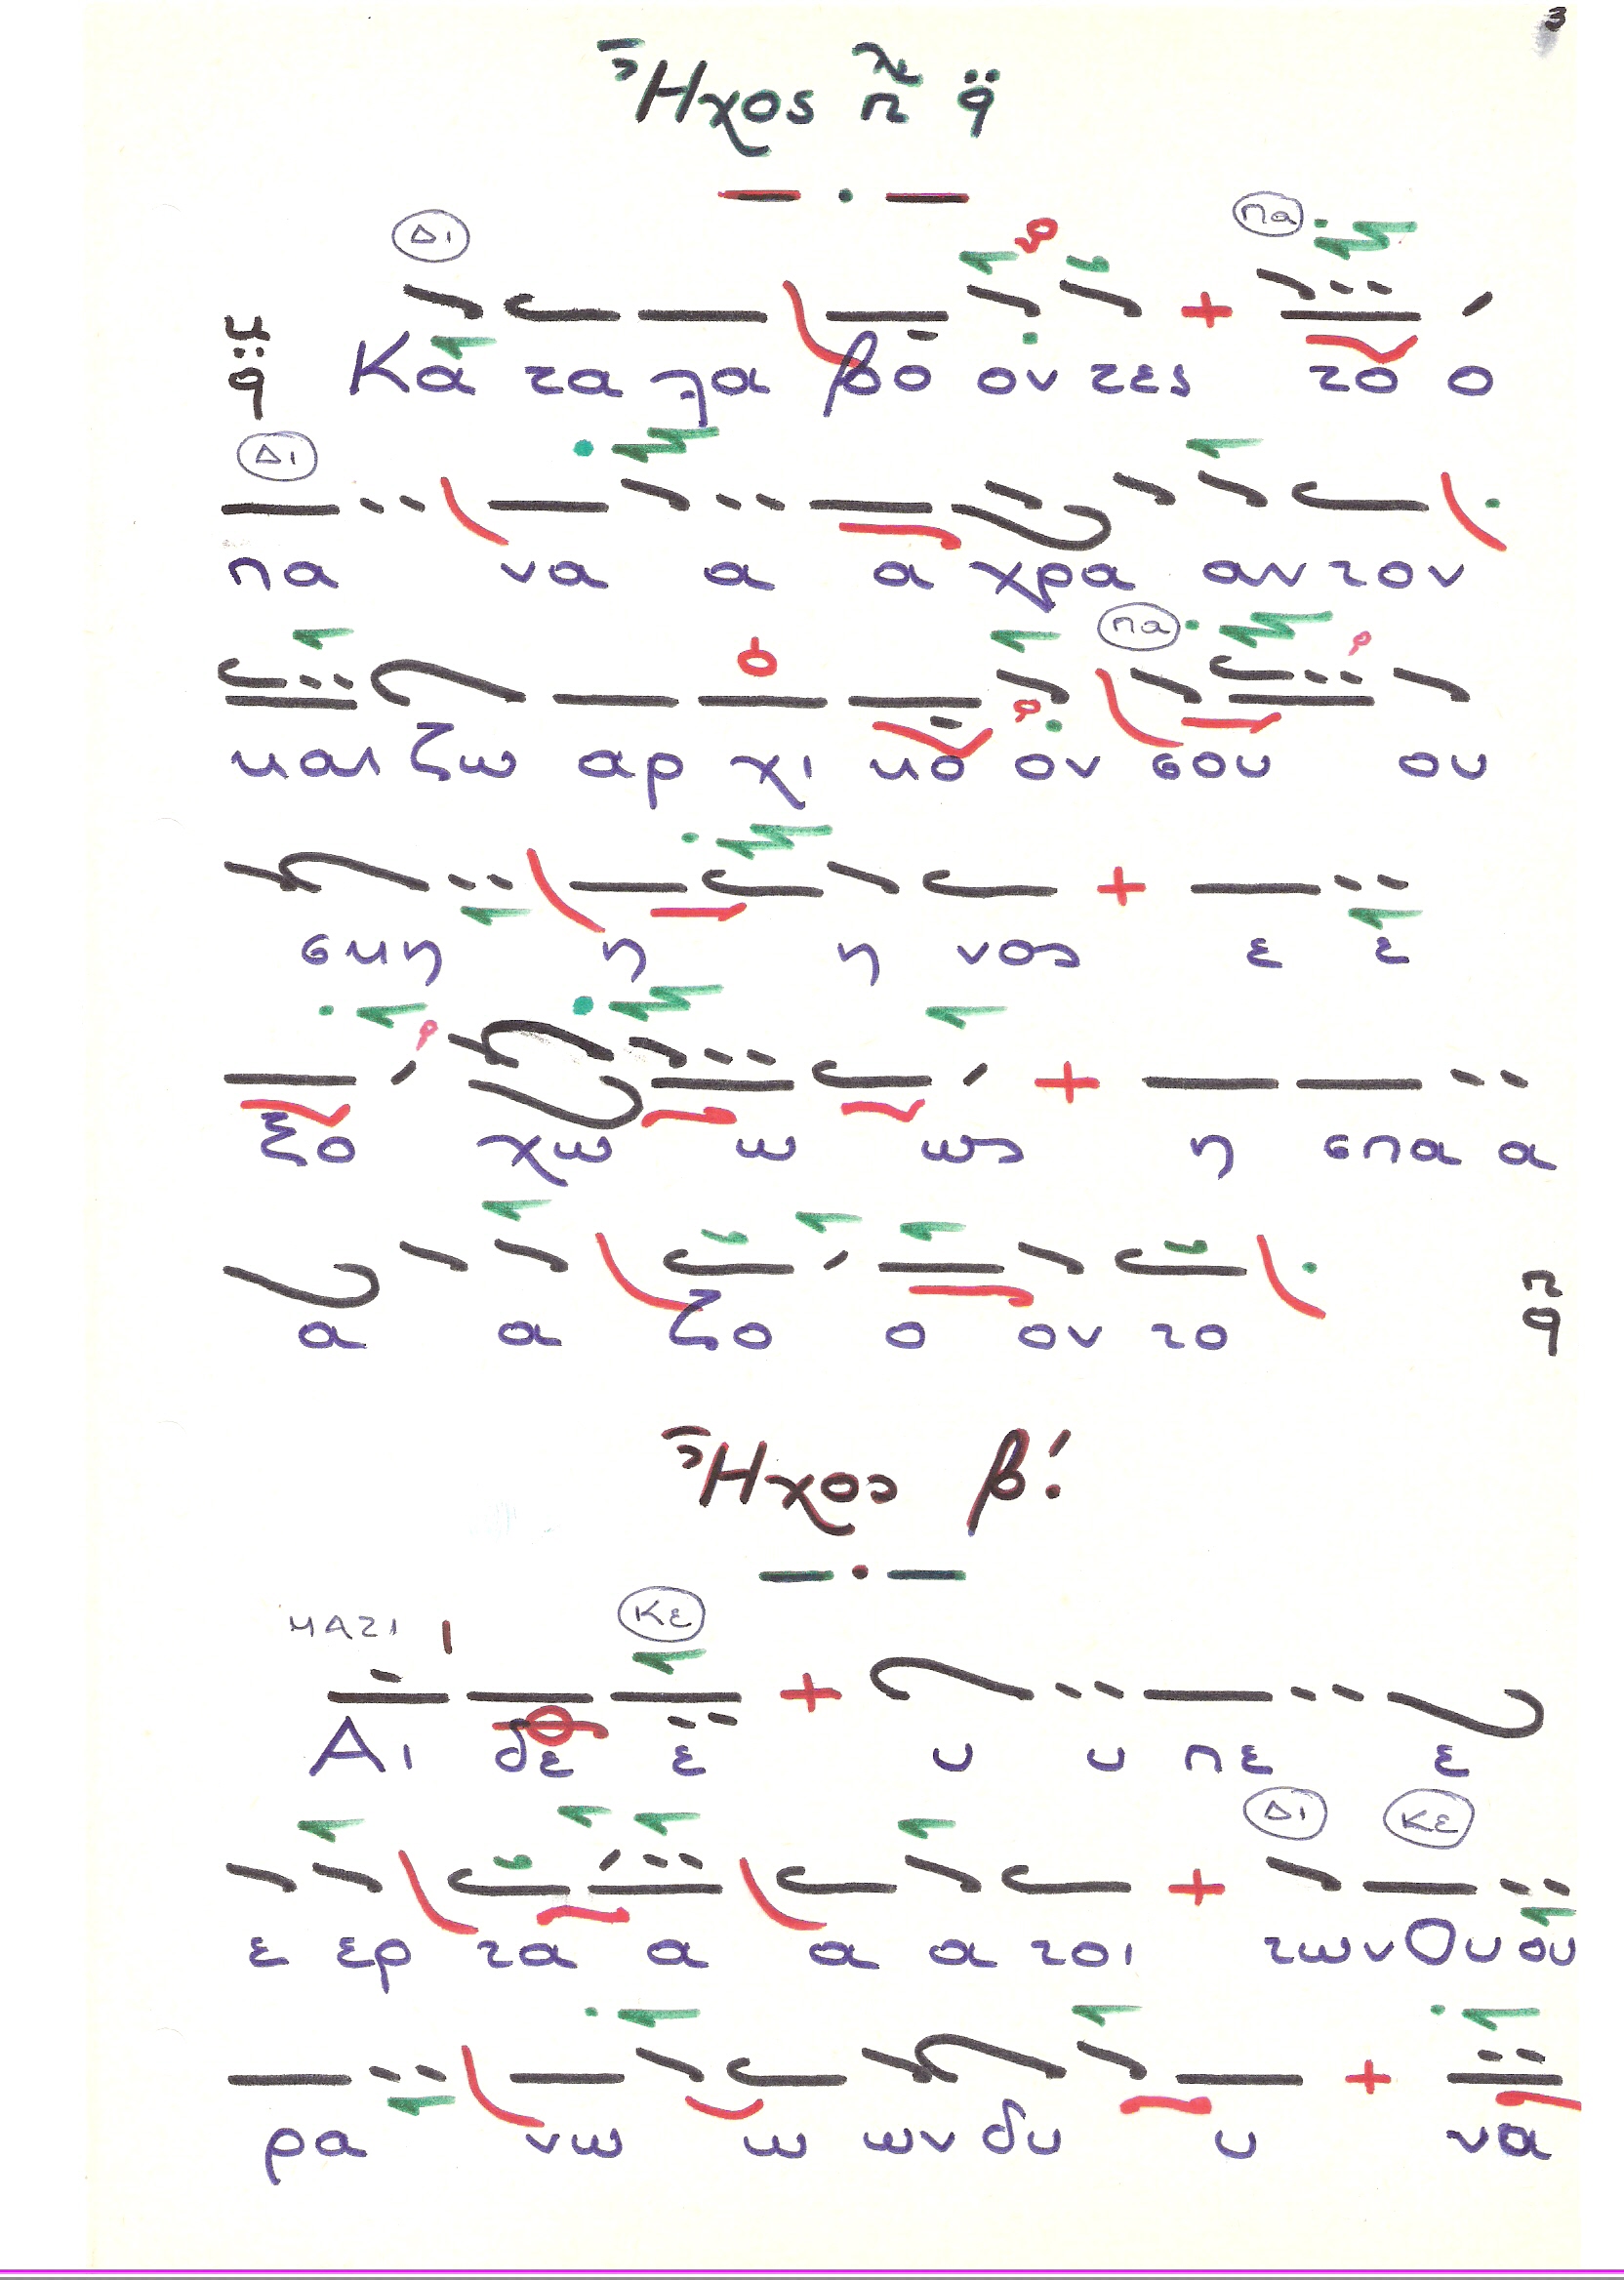 3
Ἦχος π̃ λ q̈
Δι πα
Κα τα λα βο ον τες το ο
Δι
πα να α α χρα αν τον
πα
και ζω αρ χι κο ον σου ου
σκη η η νος ε ε
ξο χω ω ως η σπα α
α α ζο ο ον το
Ἦχος β΄.
ΜΑΖΙ Κε
Αι δε ε υ υ πε ε
Δι Κε
ε ερ τα α α α τοι των Ου ου
ρα νω ω ων δυ υ να